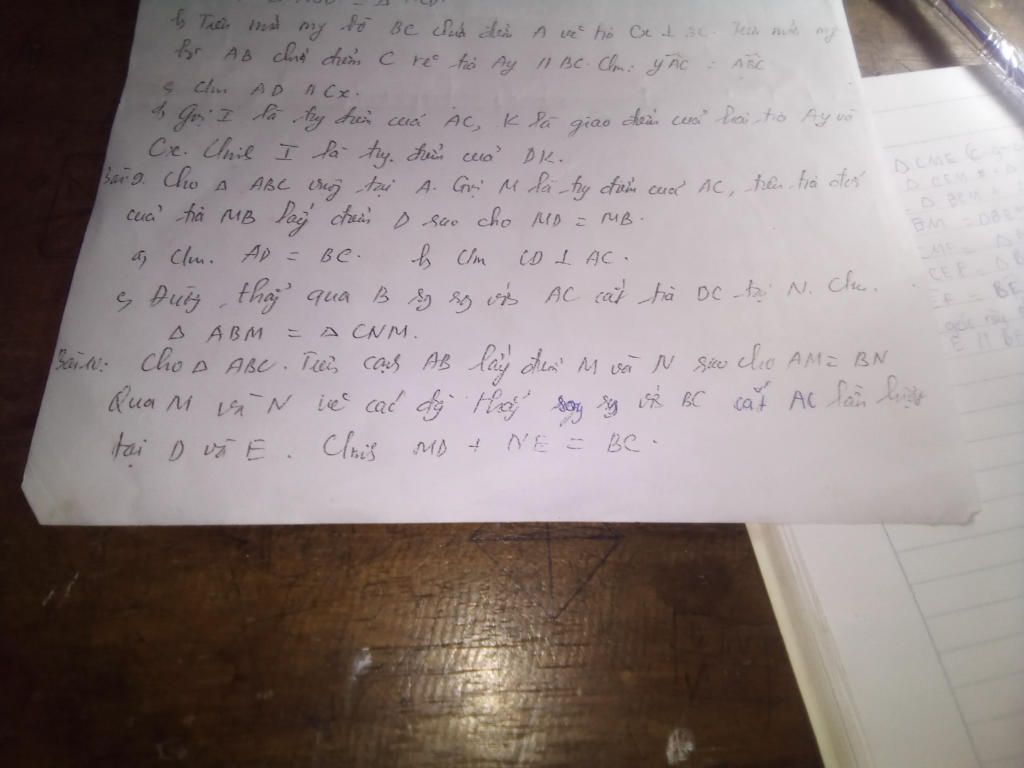 b, Trên nửa mp bờ BC chứa điểm A vẽ tia Cx ⊥ BC. Trên nửa mp
bờ AB chứa điểm C vẽ tia Ay // BC. Cm: yAC = ABC
c, Cm AD // Cx.
d, Gọi I là tr điểm của AC, K là giao điểm của hai tia Ay và
Cx. Cmis I là tr. điểm của DK.
Bài 9. Cho Δ ABC vuông tại A. Gọi M là tr điểm của AC, trên tia đối
của tia MB lấy điểm D sao cho MD = MB.
a, Cm. AD = BC. b, Cm CD ⊥ AC.
c, Đường thẳng qua B sg sg với AC cắt tia DC tại N. Cm.
Δ ABM = Δ CNM.
Bài 10: Cho Δ ABC. Trên cạnh AB lấy điểm M và N sao cho AM = BN
Qua M và N vẽ các đg thẳng sg sg với BC cắt AC lần lượt
tại D và E. Cmis MD + NE = BC.
Δ CME
Δ CEM
Δ BEM
CEF = Δ
EF = BE